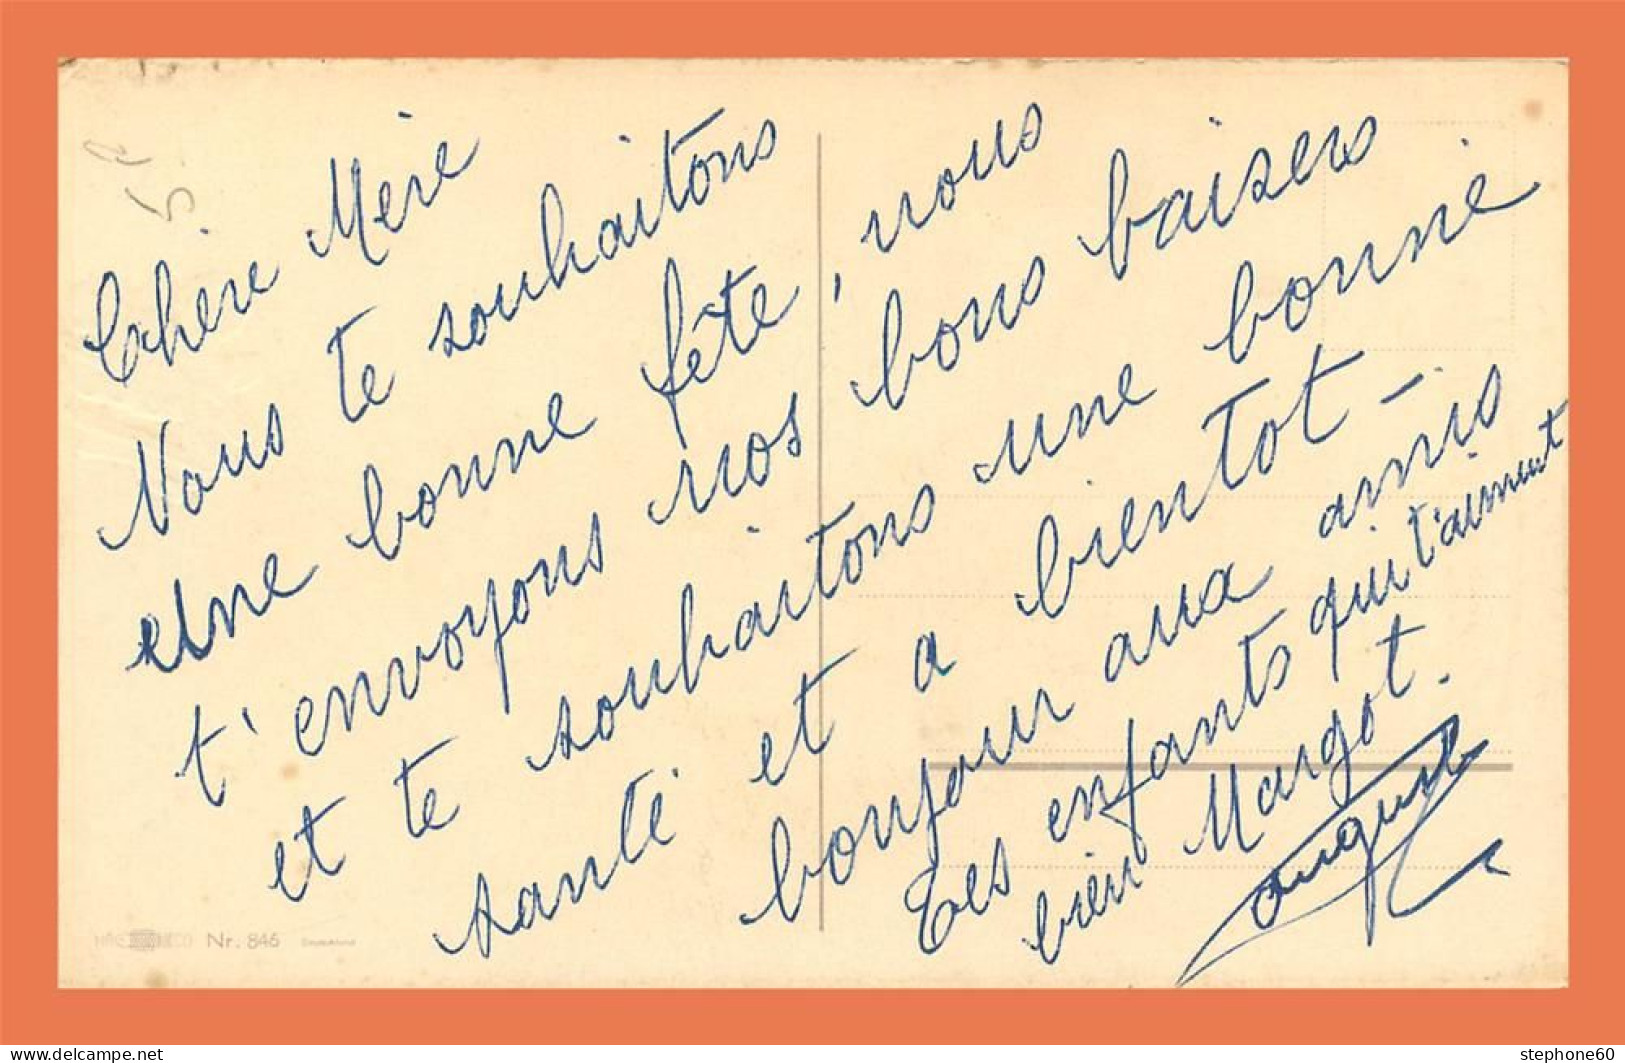 Chère Mère
Nous te souhaitons
une bonne fête, nous
t'envoyons nos bons baisers
et te souhaitons une bonne
santé et a bientot -
bonjour aux amis
Tes enfants qui t'aiment
bien Margot.
August
5
Nr. 846
www.delcampe.net
stephone60